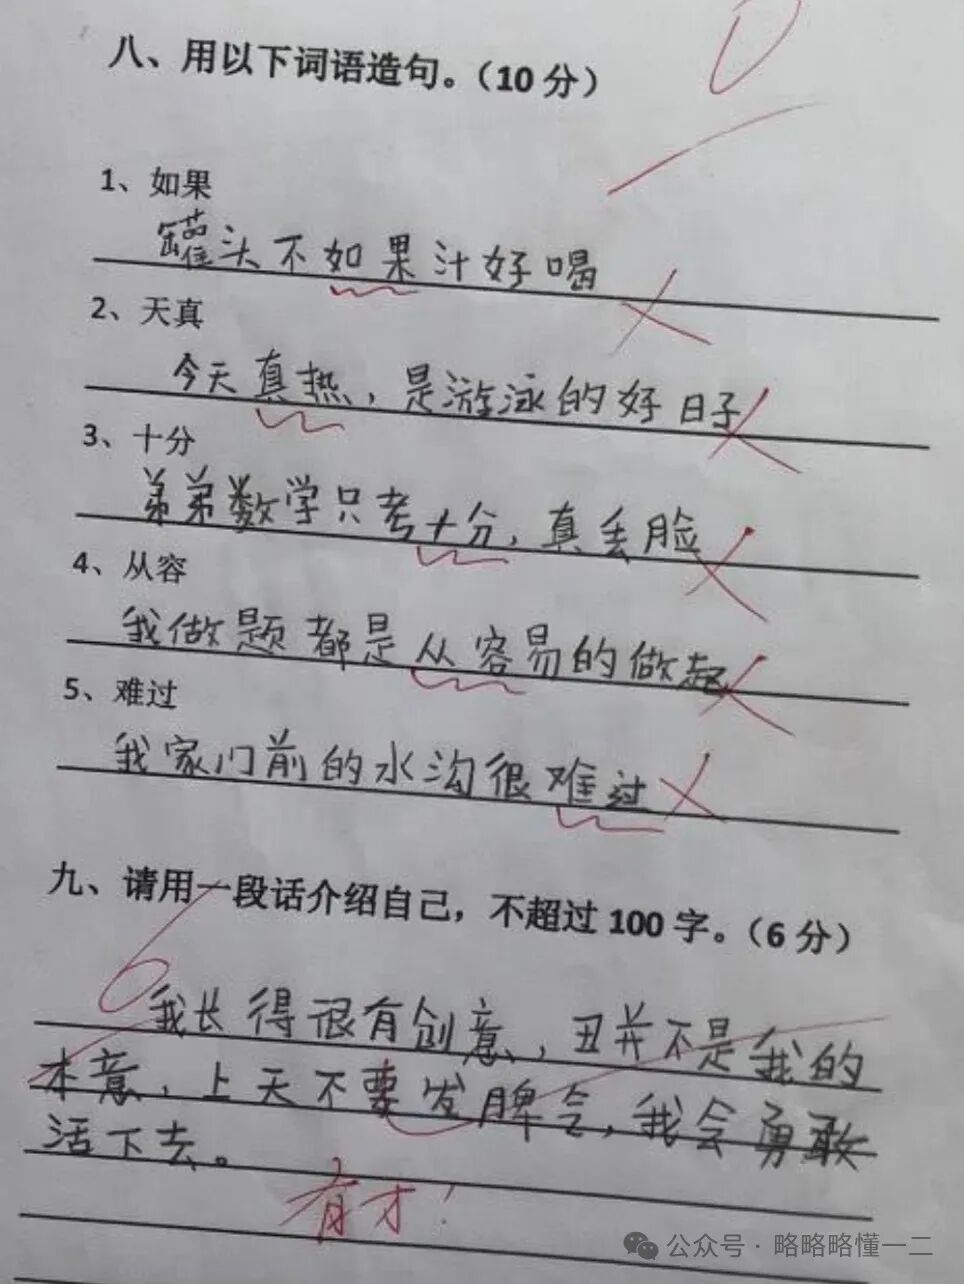 0
八、用以下词语造句。（10 分）
1、如果
罐头不如果汁好喝
2、天真
今天真热，是游泳的好日子
3、十分
弟弟数学只考十分，真丢脸
4、从容
我做题都是从容易的做起
5、难过
我家门前的水沟很难过
九、请用一段话介绍自己，不超过 100 字。（6 分）
6
我长得很有创意，丑并不是我的
本意，上天不要发脾气，我会勇敢
活下去。
有才！
公众号·略略略懂一二